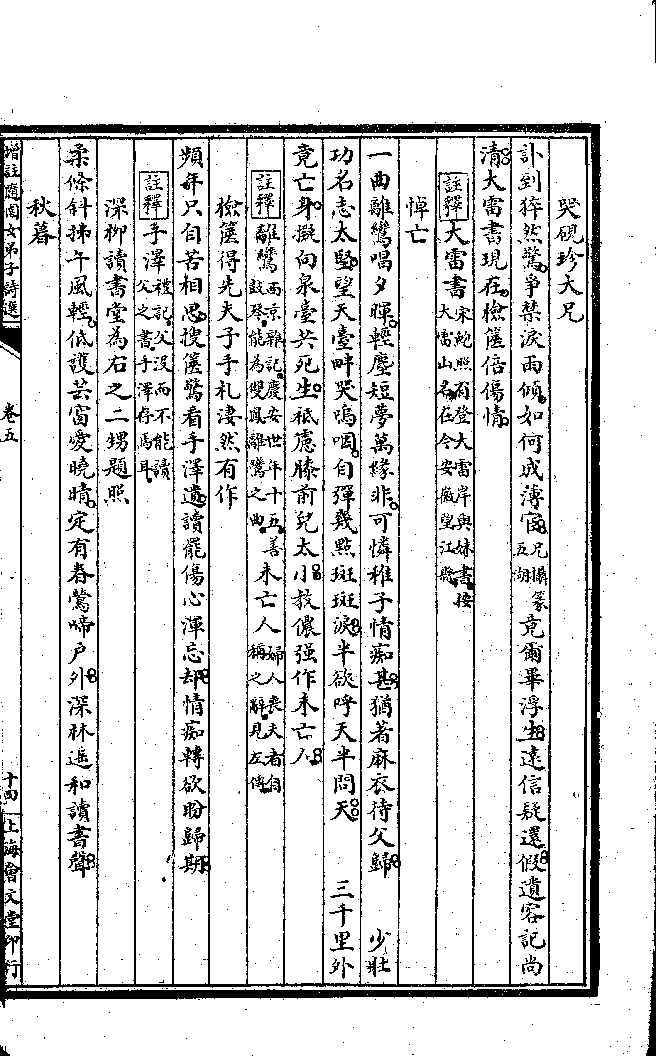 哭硯珍大兄
訃到猝然驚爭禁淚雨傾如何成薄宦兄攝篆五湖竟爾畢浮生遠信疑還假遺容記尚
清大雷書現在檢篋倍傷情
註釋 大雷書宋鮑照有登大雷岸與妹書按大雷山名在今安徽望江縣
悼亡
一曲離鸞唱夕暉輕塵短夢萬緣非可憐稚子情痴甚猶著麻衣待父歸 少壯
功名志太堅望天臺畔哭嗚咽自彈幾點斑斑淚半欲呼天半問天 三千里外
竟亡身擬向泉臺共死生祇慮膝前兒太小教儂強作未亡人
註釋 離鸞西京雜記慶安世年十五善鼓琴能為雙鳳離鸞之曲未亡人婦人喪夫者自稱之辭見左傳
檢篋得先夫子手札淒然有作
頻年只自苦相思搜篋驚看手澤遺讀罷傷心渾忘却情痴轉欲盼歸期
註釋 手澤禮記父沒而不能讀父之書手澤存焉耳
深柳讀書堂為右之二甥題照
柔條斜拂午風輕低護芸窗愛曉晴定有春鶯啼戶外深林遥和讀書聲
秋暮
增註隨園女弟子詩選 卷五 十四 上海會文堂印行